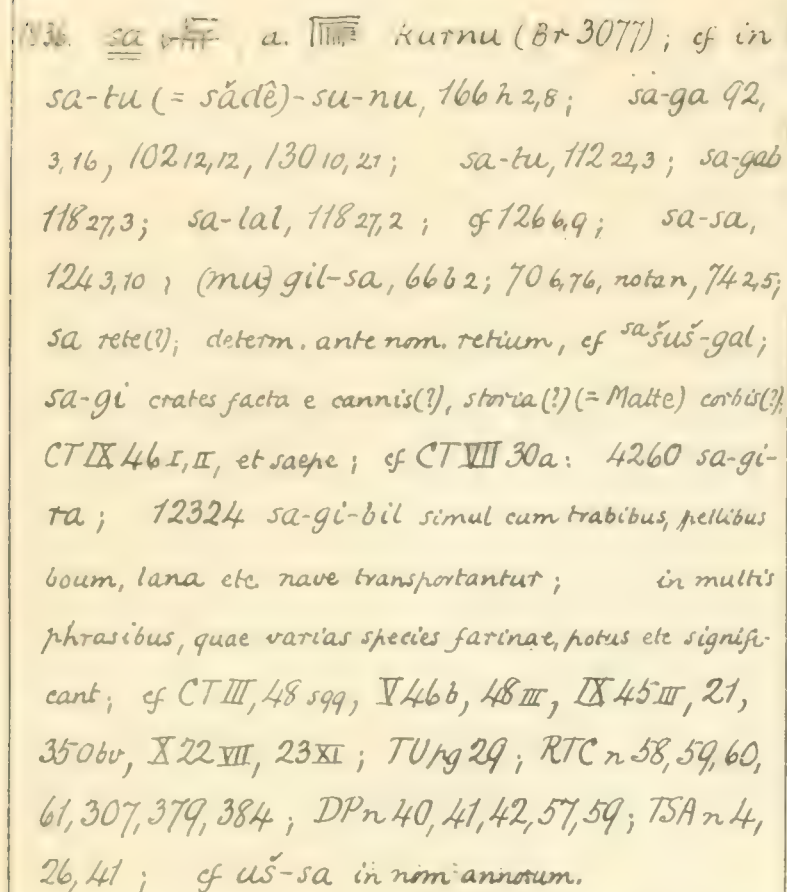 sa a. kurnu (Br 3077); cf in
sa-tu (= šădê)-su-nu, 166 h 2,8; sa-ga 92,
3,16, 102 12,12, 130 10,21; sa-tu, 112 22,3; sa-gab
118 27,3; sa-lal, 118 27,2; cf 126 6,9; sa-sa,
124 3,10; (mu) gil-sa, 66 b 2; 70 6,76, not an, 74 2,5;
sa rete(?); determ. ante nom. retium, cf ˢᵃšuš-gal;
sa-gi crates facta e cannis(?), storia(?) (= Matte) corbis(?),
CT IX 46 I, II, et saepe; cf CT VII 30a: 4260 sa-gi-
ra; 12324 sa-gi-bil simul cum trabibus, pellibus
boum, lana etc nave transportantur; in multis
phrasibus, quae varias species farinae, potus etc signifi-
cant; cf CT III, 48 sqq, V 46 b, 48 III, IX 45 III, 21,
35 Obv, X 22 VII, 23 XI; TU pg 29; RTC n 58, 59, 60,
61, 307, 379, 384; DP n 40, 41, 42, 57, 59; TSA n 4,
26, 41; cf uš-sa in nom annorum.